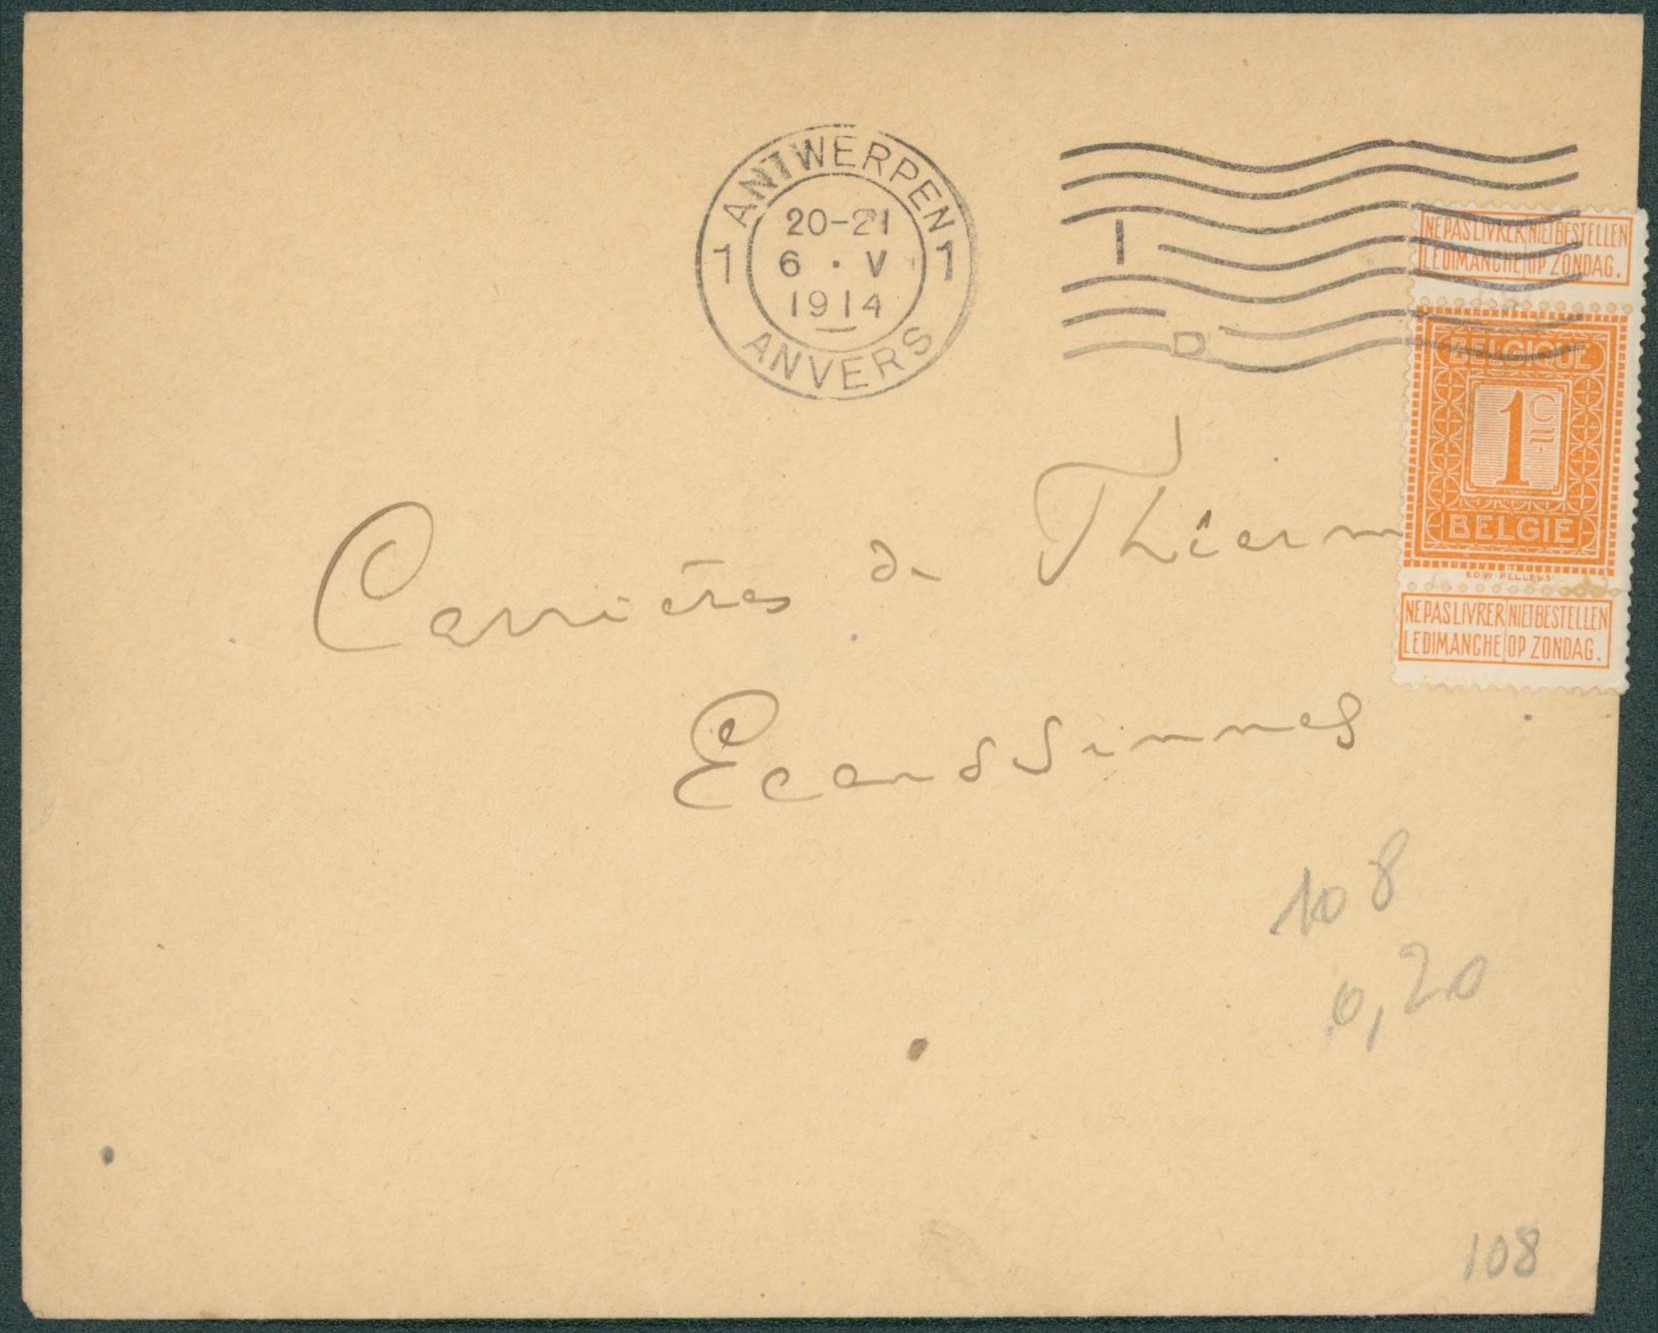 ANTWERPEN
1 20-21 1
6 · V
1914
ANVERS
1
D
NE PAS LIVRER NIET BESTELLEN
LE DIMANCHE OP ZONDAG.
BELGIQUE
1 C
BELGIE
EDW PELLENS
NE PAS LIVRER NIET BESTELLEN
LE DIMANCHE OP ZONDAG.
Carrières de
Ecaussinnes
108
0,20
108